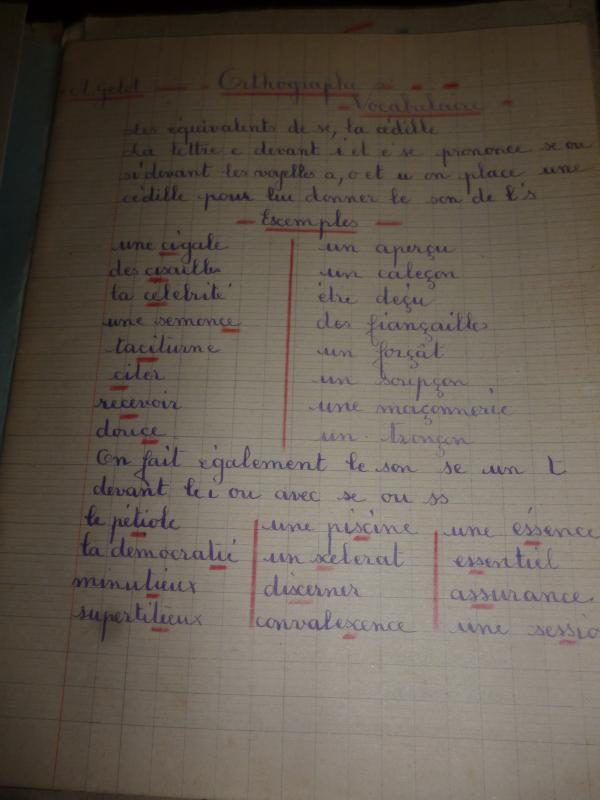 Orthographe
Vocabulaire
Les équivalents de se, la cédille
La lettre c devant i et e se prononce se ou
si devant les voyelles a, o et u on place une
cédille pour lui donner le son de l's
Exemples
une cigale un aperçu
des cisailles un caleçon
la célébrité être deçu
une semonce des fiançailles
taciturne un forçat
citer un soupçon
recevoir une maçonnerie
douce un tronçon
On fait également le son se un t
devant le i ou avec sc ou ss
le pétiole une piscine une éssence
la démocratié un scelerat essentiel
minutieux discerner assurance
supertitieux convalescence une sessio